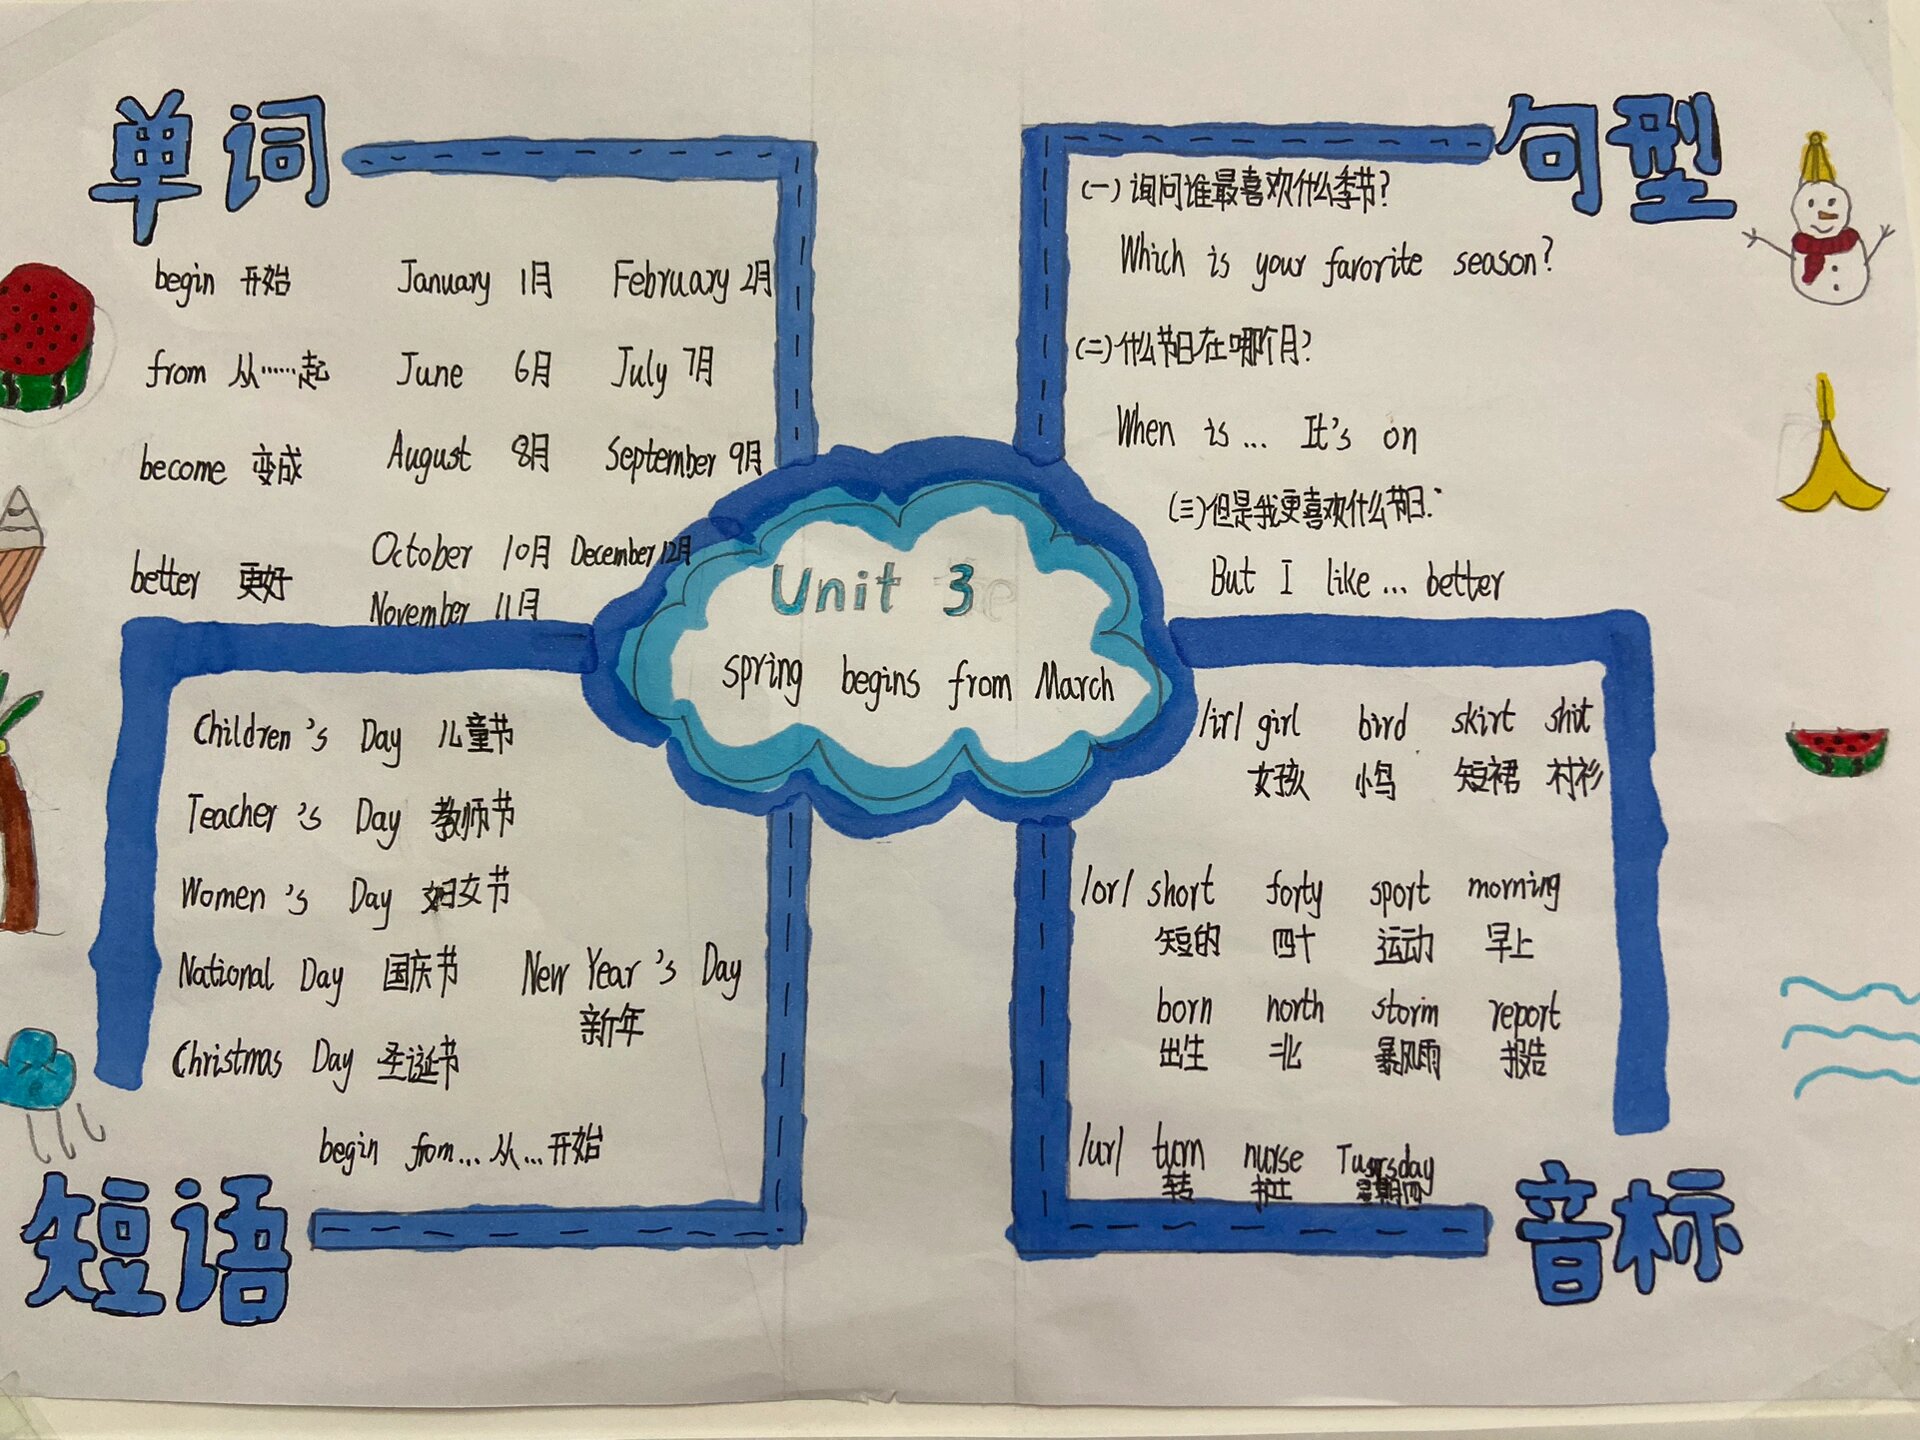 单词
begin 开始 January 1月 February 2月
from 从……起 June 6月 July 7月
become 变成 August 8月 September 9月
better 更好 October 10月 December 12月
November 11月
句型
(一)询问谁最喜欢什么季节?
Which is your favorite season?
(二)什么节日在哪个月?
When is... It's on
(三)但是我更喜欢什么节日.
But I like... better
Unit 3
spring begins from March
Children's Day 儿童节
Teacher's Day 教师节
Women's Day 妇女节
National Day 国庆节 New Year's Day
新年
Christmas Day 圣诞节
begin from...从...开始
短语
/ir/ girl bird skirt shit
女孩 小鸟 短裙 衬衫
/or/ short forty sport morning
短的 四十 运动 早上
born north storm report
出生 北 暴风雨 报告
/ur/ turn nurse
转 护士 星期四
音标